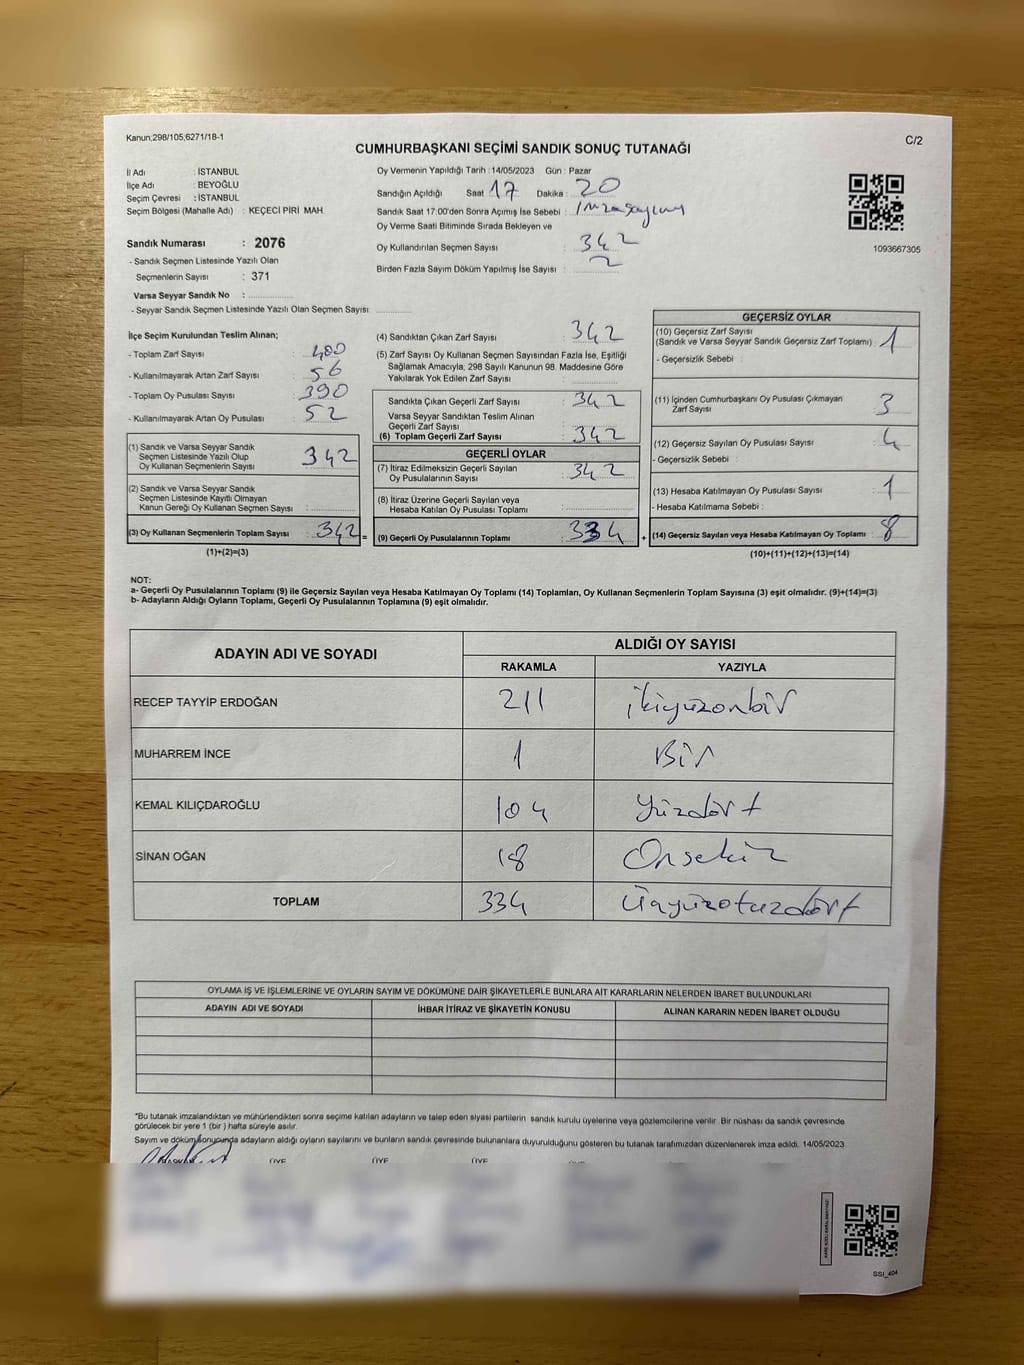 Kanun;298/105;6271/18-1
C/2
CUMHURBAŞKANI SEÇİMİ SANDIK SONUÇ TUTANAĞI
İl Adı : İSTANBUL
İlçe Adı : BEYOĞLU
Seçim Çevresi : İSTANBUL
Seçim Bölgesi (Mahalle Adı) : KEÇECİ PİRİ MAH.
Sandık Numarası : 2076
- Sandık Seçmen Listesinde Yazılı Olan
Seçmenlerin Sayısı : 371
Varsa Seyyar Sandık No :
- Seyyar Sandık Seçmen Listesinde Yazılı Olan Seçmen Sayısı
Oy Vermenin Yapıldığı Tarih : 14/05/2023 Gün : Pazar
Sandığın Açıldığı Saat 17 Dakika : 20
Sandık Saat 17:00'den Sonra Açımış İse Sebebi : imza sayımı
Oy Verme Saati Bitiminde Sırada Bekleyen ve
Oy Kullandırılan Seçmen Sayısı : 342
Birden Fazla Sayım Döküm Yapılmış İse Sayısı : 2
1093667305
İlçe Seçim Kurulundan Teslim Alınan;
- Toplam Zarf Sayısı : 400
- Kullanılmayarak Artan Zarf Sayısı : 56
- Toplam Oy Pusulası Sayısı : 390
- Kullanılmayarak Artan Oy Pusulası : 52
(1) Sandık ve Varsa Seyyar Sandık
Seçmen Listesinde Yazılı Olup
Oy Kullanan Seçmenlerin Sayısı : 342
(2) Sandık ve Varsa Seyyar Sandık
Seçmen Listesinde Kayıtlı Olmayan
Kanun Gereği Oy Kullanan Seçmen Sayısı :
(3) Oy Kullanan Seçmenlerin Toplam Sayısı : 342 =
(1)+(2)=(3)
(4) Sandıktan Çıkan Zarf Sayısı : 342
(5) Zarf Sayısı Oy Kullanan Seçmen Sayısından Fazla İse, Eşitliği
Sağlamak Amacıyla, 298 Sayılı Kanunun 98. Maddesine Göre
Yakılarak Yok Edilen Zarf Sayısı :
Sandıkta Çıkan Geçerli Zarf Sayısı : 342
Varsa Seyyar Sandıktan Teslim Alınan
Geçerli Zarf Sayısı :
(6) Toplam Geçerli Zarf Sayısı : 342
GEÇERLİ OYLAR
(7) İtiraz Edilmeksizin Geçerli Sayılan
Oy Pusulalarının Sayısı : 342
(8) İtiraz Üzerine Geçerli Sayılan veya
Hesaba Katılan Oy Pusulası Toplamı :
(9) Geçerli Oy Pusulalarının Toplamı : 334 +
GEÇERSİZ OYLAR
(10) Geçersiz Zarf Sayısı
(Sandık ve Varsa Seyyar Sandık Geçersiz Zarf Toplamı) : 1
- Geçersizlik Sebebi :
(11) İçinden Cumhurbaşkanı Oy Pusulası Çıkmayan
Zarf Sayısı : 3
(12) Geçersiz Sayılan Oy Pusulası Sayısı : 4
- Geçersizlik Sebebi :
(13) Hesaba Katılmayan Oy Pusulası Sayısı : 1
- Hesaba Katılmama Sebebi :
(14) Geçersiz Sayılan veya Hesaba Katılmayan Oy Toplamı : 8
(10)+(11)+(12)+(13)=(14)
NOT:
a- Geçerli Oy Pusulalarının Toplamı (9) ile Geçersiz Sayılan veya Hesaba Katılmayan Oy Toplamı (14) Toplamları, Oy Kullanan Seçmenlerin Toplam Sayısına (3) eşit olmalıdır. (9)+(14)=(3)
b- Adayların Aldığı Oyların Toplamı, Geçerli Oy Pusulalarının Toplamına (9) eşit olmalıdır.
ADAYIN ADI VE SOYADI ALDIĞI OY SAYISI
RAKAMLA YAZIYLA
RECEP TAYYİP ERDOĞAN 211 ikiyüzonbir
MUHARREM İNCE 1 Bir
KEMAL KILIÇDAROĞLU 104 yüzdört
SİNAN OĞAN 18 Onsekiz
TOPLAM 334 Üçyüzotuzdört
OYLAMA İŞ VE İŞLEMLERİNE VE OYLARIN SAYIM VE DÖKÜMÜNE DAİR ŞİKAYETLERLE BUNLARA AİT KARARLARIN NELERDEN İBARET BULUNDUKLARI
ADAYIN ADI VE SOYADI İHBAR İTİRAZ VE ŞİKAYETİN KONUSU ALINAN KARARIN NEDEN İBARET OLDUĞU
"Bu tutanak imzalandıktan ve mühürlendikten sonra seçime katılan adayların ve talep eden siyasi partilerin sandık kurulu üyelerine veya gözlemcilerine verilir. Bir nüshası da sandık çevresinde
görülecek bir yere 1 (bir ) hafta süreyle asılır.
Sayım ve döküm sonucunda adayların aldığı oyların sayılarını ve bunların sandık çevresinde bulunanlara duyurulduğunu gösteren bu tutanak tarafımızdan düzenlenerek imza edildi. 14/05/2023
ÜYE ÜYE ÜYE
SSI_404